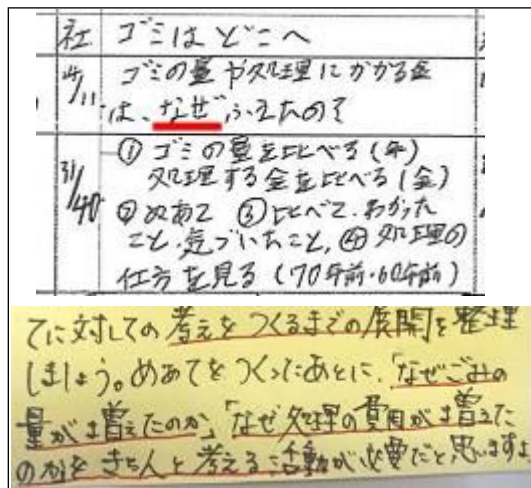 社 ゴミはどこへ
4/11 ゴミの量や処理にかかる金
は、なぜふえたの?
31/40 ① ゴミの量を比べる(年)
処理する金を比べる(金)
② めあて ③ 比べて、わかった
こと・気づいたこと、④ 処理の
仕方を見る(70年前・60年前)
てに対しての考えをつくるまでの展開を整理
しましょう。めあてをつくったあとに、「なぜごみの
量が増えたのか、「なぜ処理の費用が増えた
のかをきちんと考える活動が必要だと思いますよ